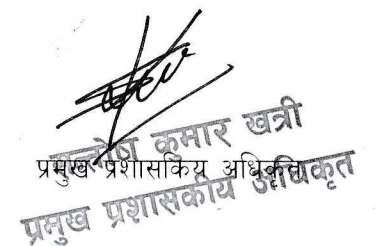 कुमार खत्री
प्रमुख प्रशासकिय अधिकृत
प्रमुख प्रशासकीय अधिकृत